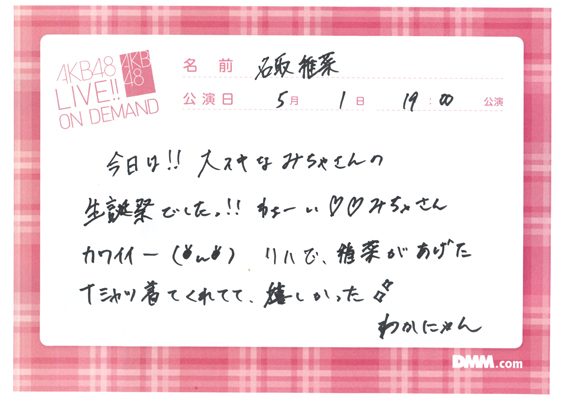 AKB48
LIVE!!
ON DEMAND
AKB
48
名前 石取稚菜
公演日 5月 1日 19:00 公演
今日は!! 大スキなみちゃさんの
生誕祭でしたっ!! わょーい♡♡みちゃさん
カワイイー(・ω・) リハで、稚菜があげた
Tシャツ着てくれてて、嬉しかった
わかにゃん
DMM.com